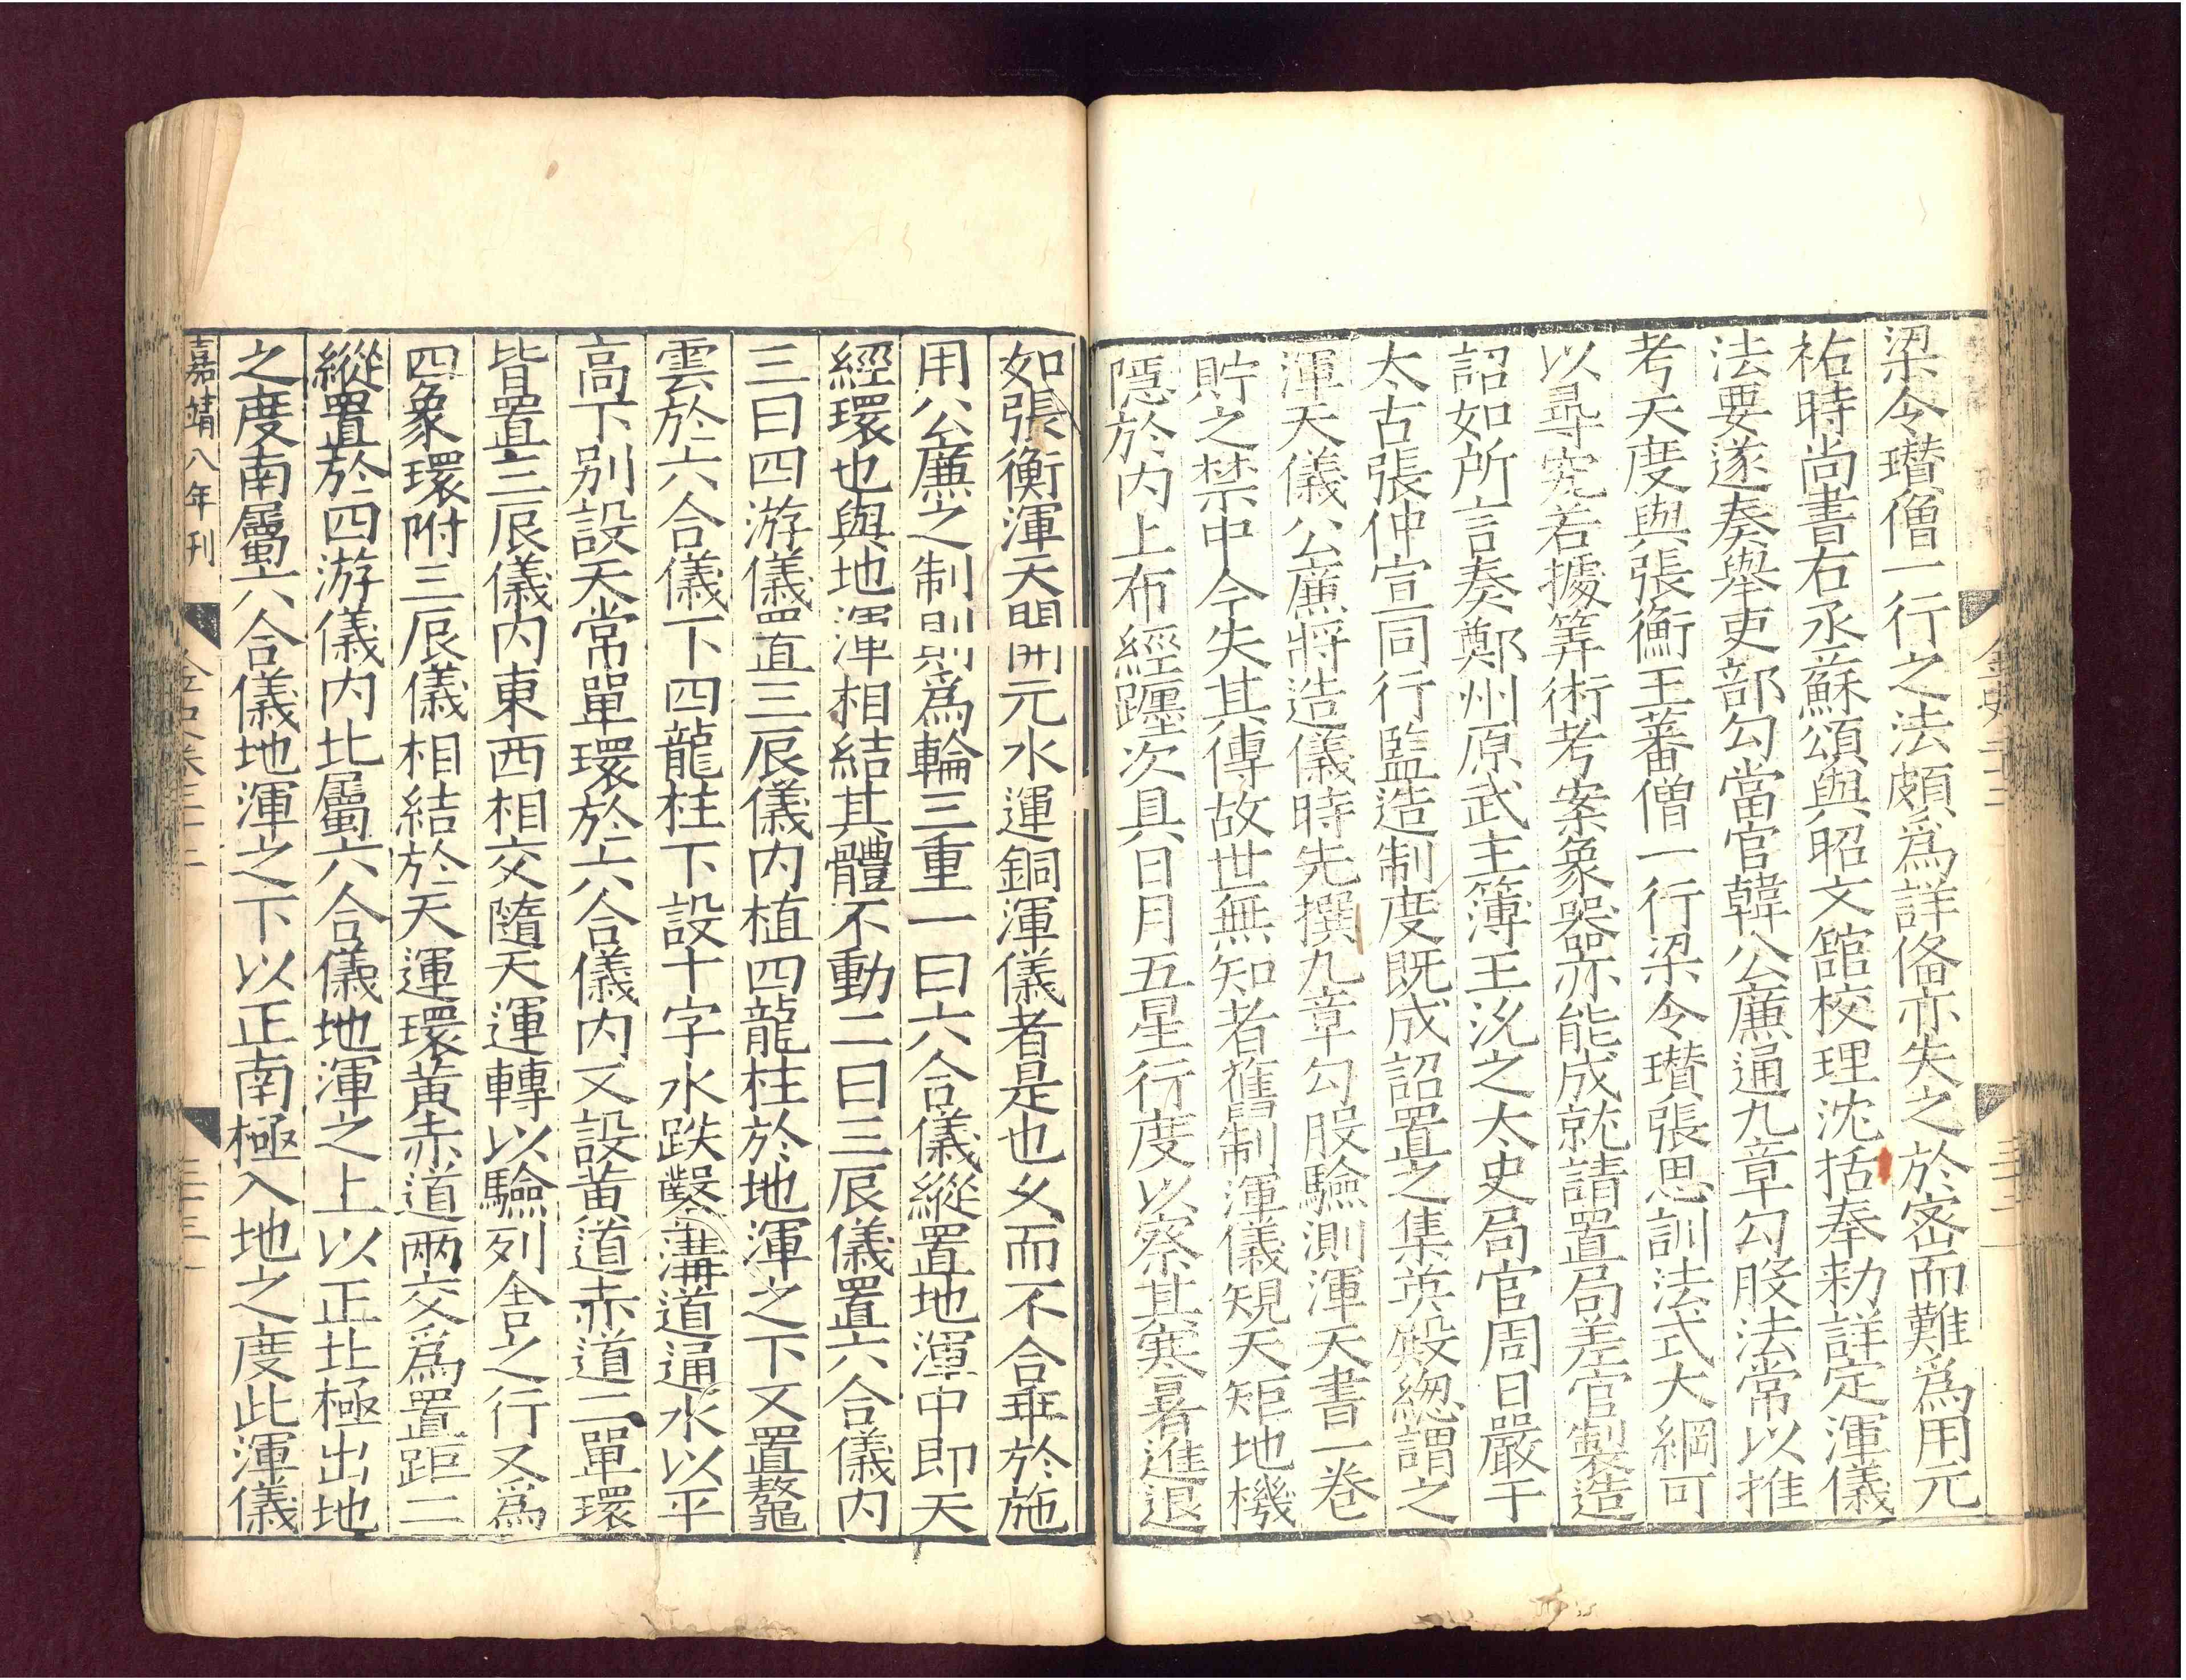 梁令瓉僧一行之法頗爲詳俻亦失之於宻而難爲用元
祐時尚書右丞蘇頌與昭文舘校理沈括奉勑詳定渾儀
法要遂奏舉吏部勾當官韓公廉通九章勾股法常以推
考天度與張衡王蕃僧一行梁令瓉張思訓法式大綱可
以尋究若據筭術考案象器亦能成就請置局差官製造
詔如所言奏鄭州原武主簿王沇之太史局官周日嚴于
太古張仲宣同行監造制度既成詔置之集英殿緫謂之
渾天儀公廉將造儀時先撰九章勾股驗測渾天書一卷
貯之禁中今失其傳故世無知者舊制渾儀規天矩地機
隱於内上布經躔次具日月五星行度以察其寒暑進退
如張衡渾天開元水運銅渾儀者是也乆而不合乖於施
用公廉之制則爲輪三重一曰六合儀縱置地渾中即天
經環也與地渾相結其體不動二曰三辰儀置六合儀内
三曰四游儀置三辰儀内植四龍柱於地渾之下又置鼇
雲於六合儀下四龍柱下設十字水趺鑿溝道通水以平
高下别設天常單環於六合儀内又設黄道赤道二單環
皆置三辰儀内東西相交隨天運轉以驗列舍之行又爲
四象環附三辰儀相結於天運環黄赤道兩交爲置距二
縱置於四游儀内北屬六合儀地渾之上以正北極出地
之度南屬六合儀地渾之下以正南極入地之度此渾儀
嘉靖八年刊